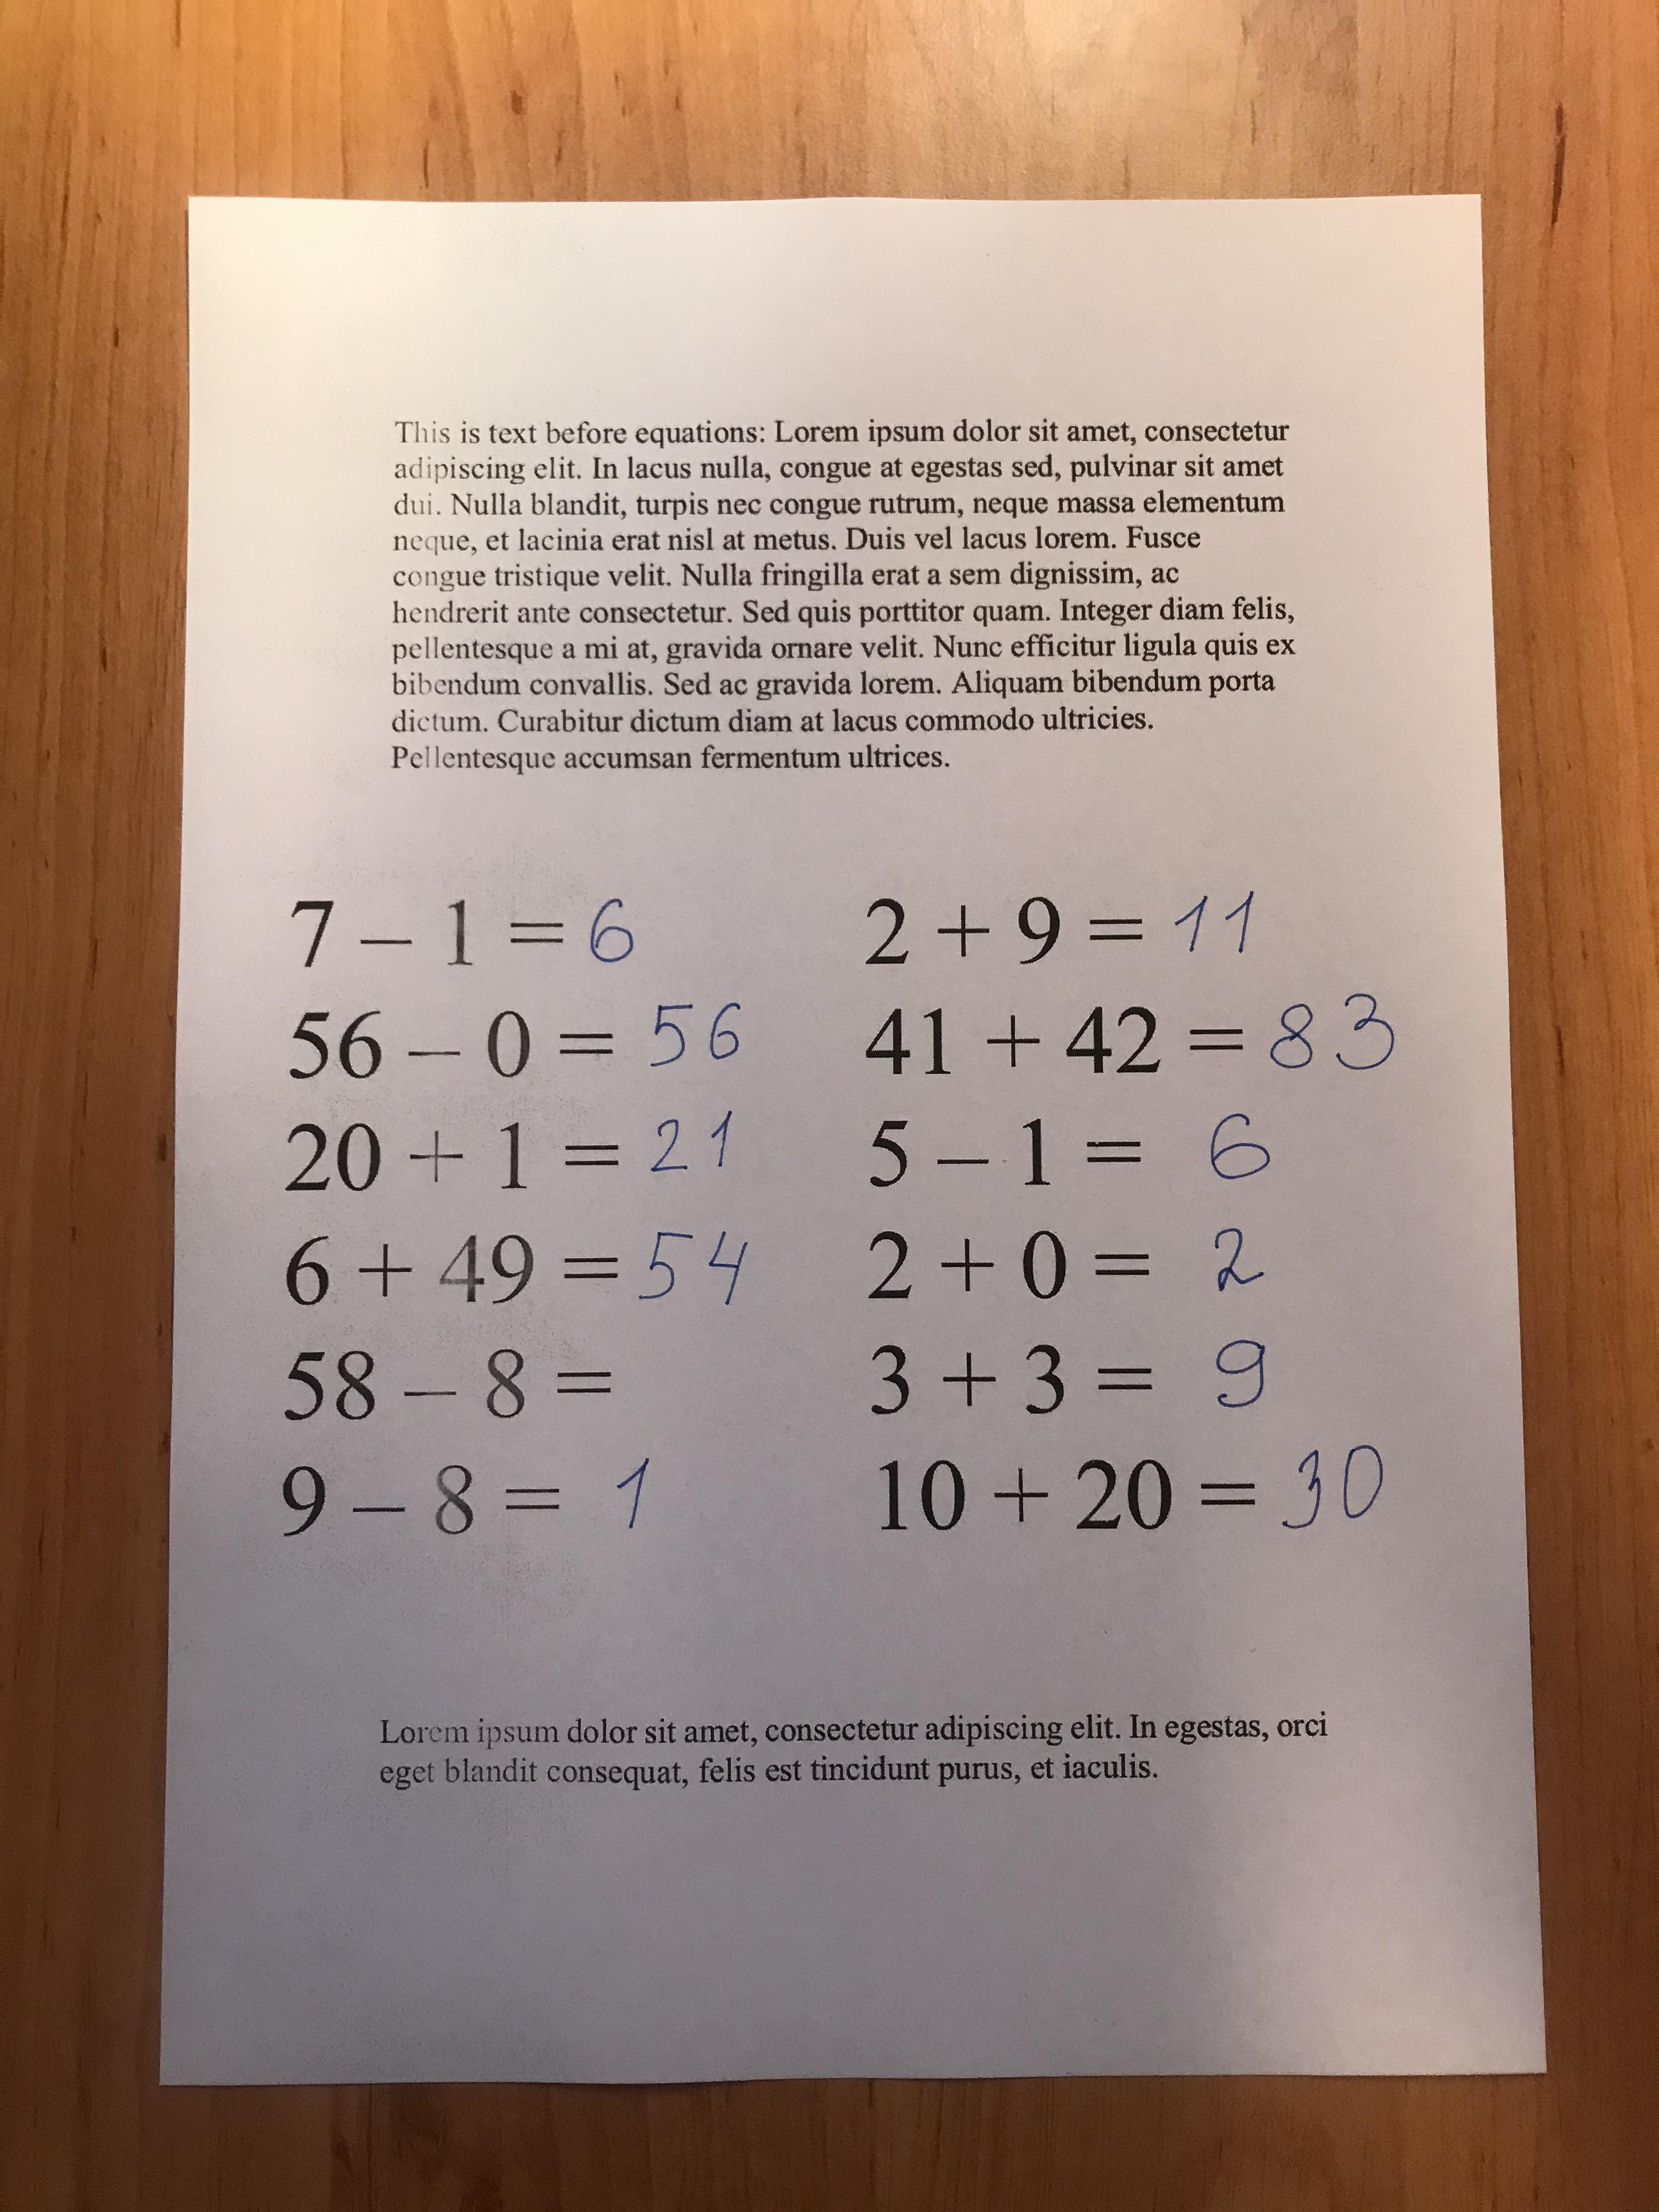 This is text before equations: Lorem ipsum dolor sit amet, consectetur
adipiscing elit. In lacus nulla, congue at egestas sed, pulvinar sit amet
dui. Nulla blandit, turpis nec congue rutrum, neque massa elementum
neque, et lacinia erat nisl at metus. Duis vel lacus lorem. Fusce
congue tristique velit. Nulla fringilla erat a sem dignissim, ac
hendrerit ante consectetur. Sed quis porttitor quam. Integer diam felis,
pellentesque a mi at, gravida ornare velit. Nunc efficitur ligula quis ex
bibendum convallis. Sed ac gravida lorem. Aliquam bibendum porta
dictum. Curabitur dictum diam at lacus commodo ultricies.
Pellentesque accumsan fermentum ultrices.
7 – 1 = 6
56 – 0 = 56
20 + 1 = 21
6 + 49 = 54
58 – 8 =
9 – 8 = 1
2 + 9 = 11
41 + 42 = 83
5 – 1 = 6
2 + 0 = 2
3 + 3 = 9
10 + 20 = 30
Lorem ipsum dolor sit amet, consectetur adipiscing elit. In egestas, orci
eget blandit consequat, felis est tincidunt purus, et iaculis.